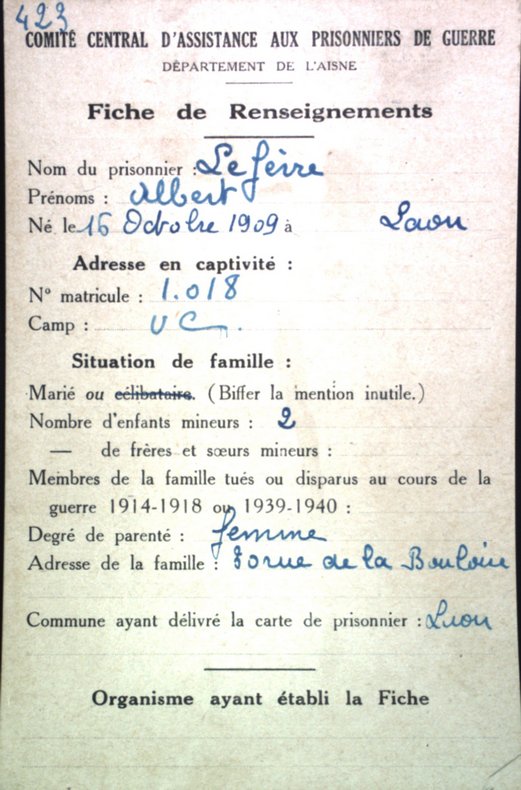 423
COMITÉ CENTRAL D'ASSISTANCE AUX PRISONNIERS DE GUERRE
DÉPARTEMENT DE L'AISNE
Fiche de Renseignements
Nom du prisonnier : Lefèvre
Prénoms : Albert
Né le 16 Octobre 1909 à Laon
Adresse en captivité :
N° matricule : 1.018
Camp : V C.
Situation de famille :
Marié ou célibataire. (Biffer la mention inutile.)
Nombre d'enfants mineurs : 2
— de frères et sœurs mineurs :
Membres de la famille tués ou disparus au cours de la
guerre 1914-1918 ou 1939-1940 :
Degré de parenté : femme
Adresse de la famille : rue de la Bouloire
Commune ayant délivré la carte de prisonnier : Laon
Organisme ayant établi la Fiche